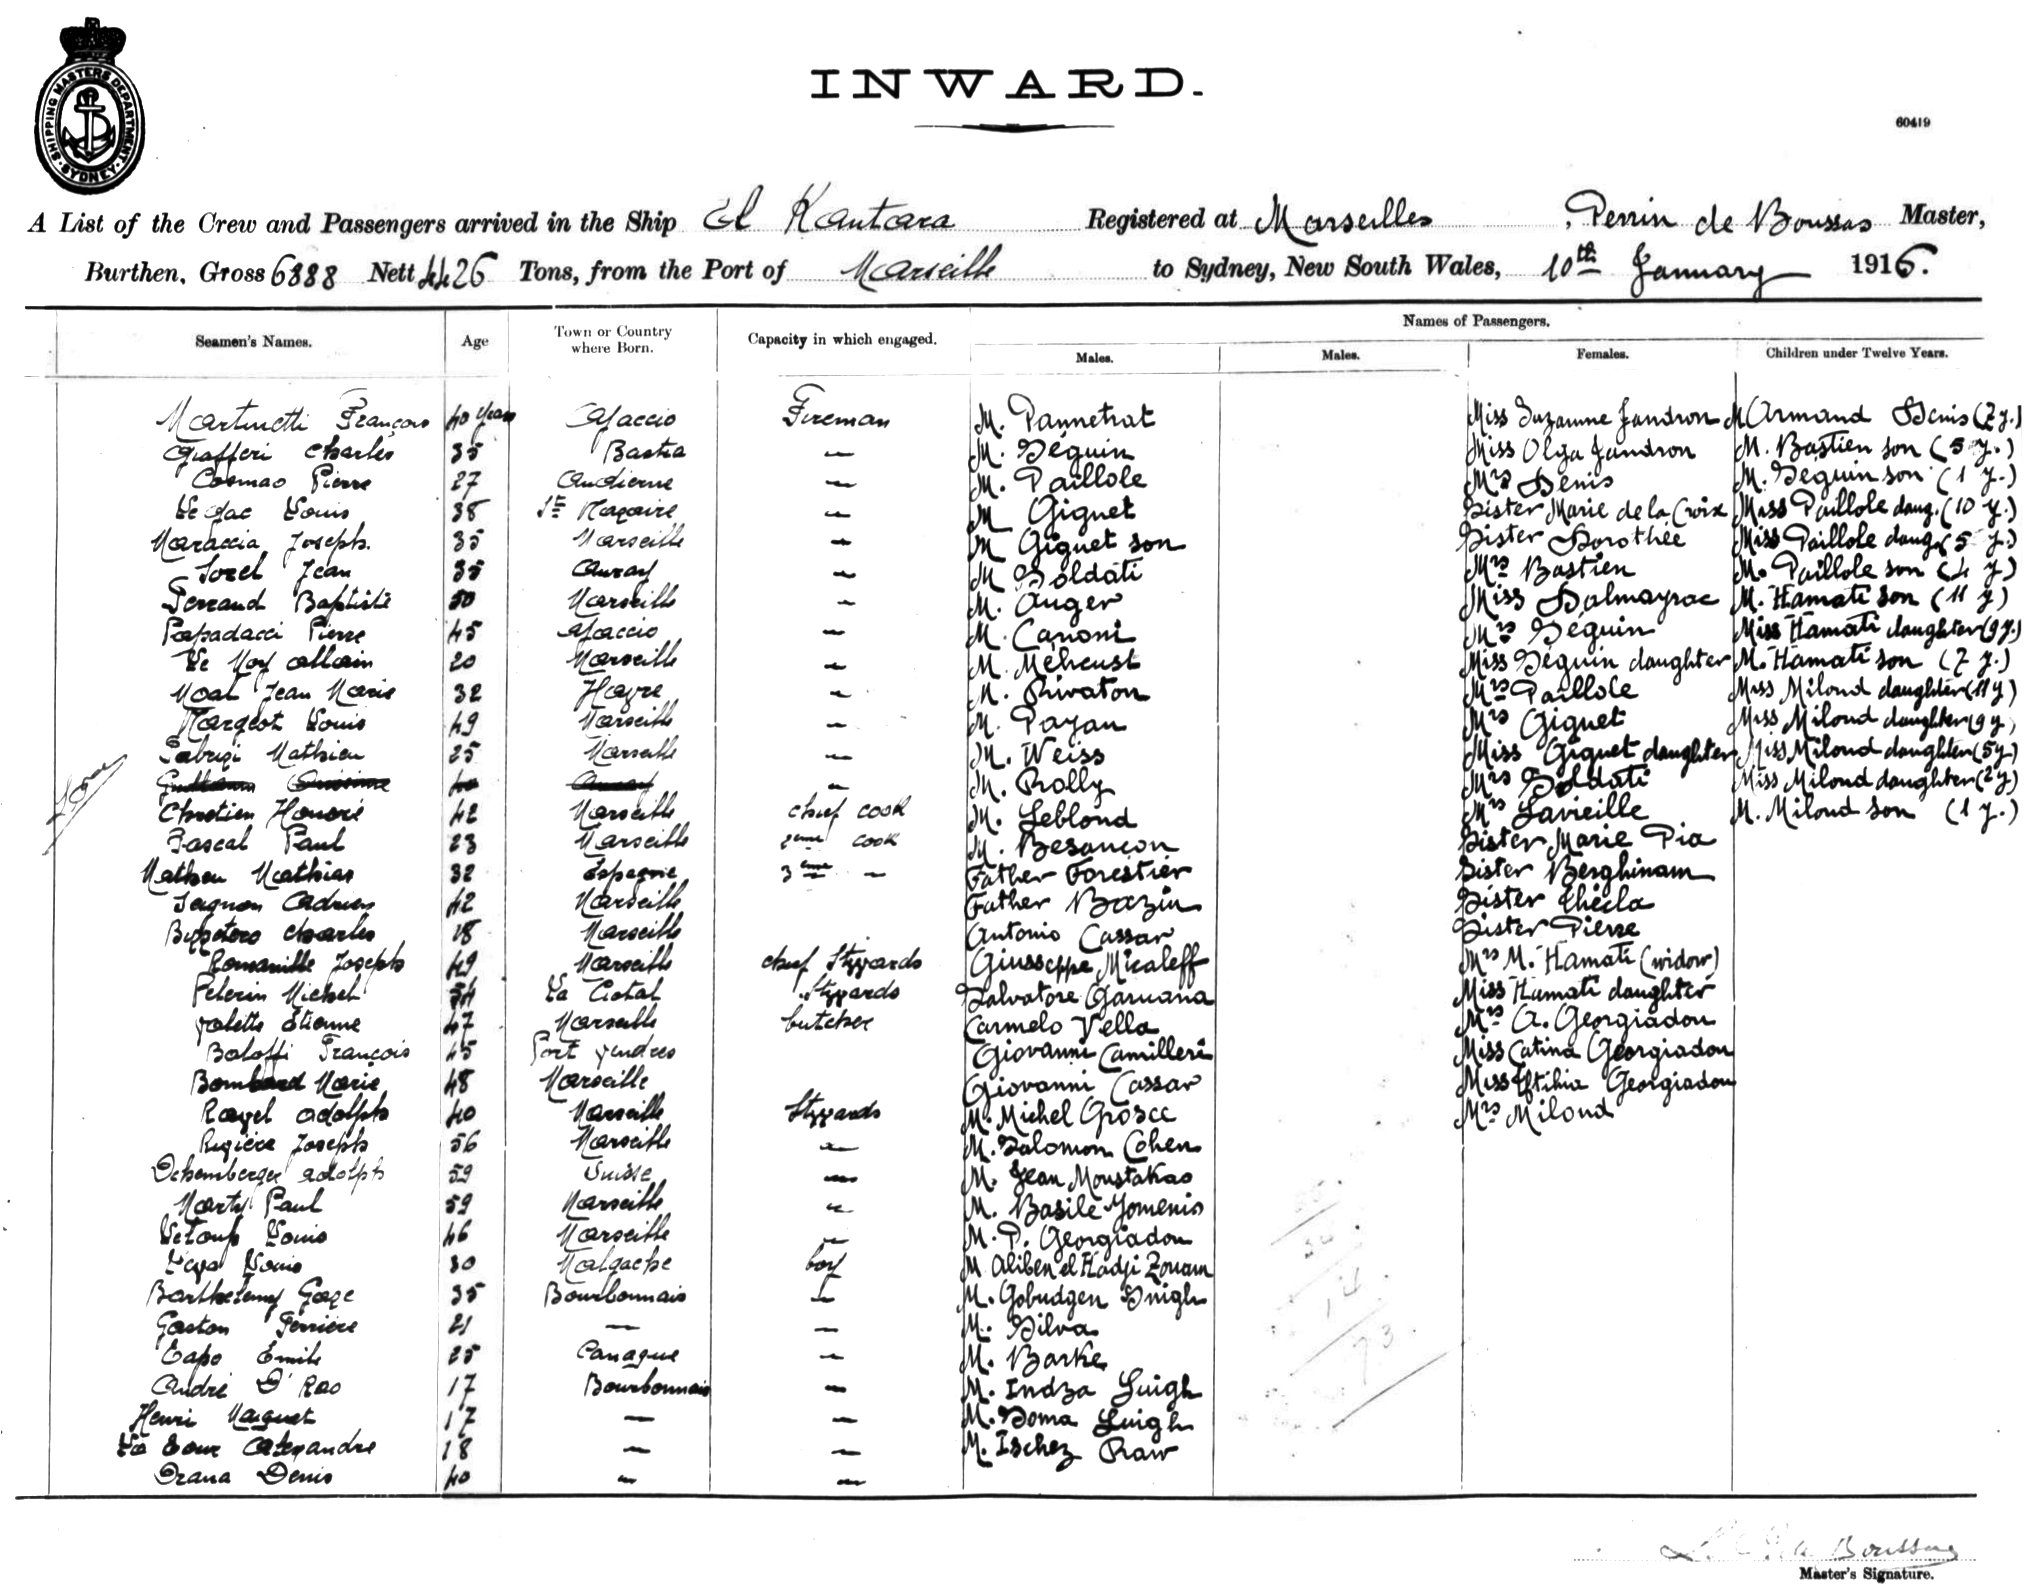 SHIPPING MASTERS DEPARTMENT · SYDNEY ·
INWARD.
60419
A List of the Crew and Passengers arrived in the Ship El Kantara Registered at Marseilles, Perrin de Boussac Master,
Burthen, Gross 6888 Nett 4426 Tons, from the Port of Marseille to Sydney, New South Wales, 10th January 1916.
Names of Passengers.
Seamen's Names. Age Town or Country where Born. Capacity in which engaged. Males. Males. Females. Children under Twelve Years.
Martinetti François 40 years Ajaccio Fireman M. Pannetrat Miss Suzanne Jandron M Armand Denis (7 y.)
Giafferi Charles 35 Bastia — M. Béguin Miss Olga Jandron M. Bastien son (5 y.)
Cosmao Pierre 27 Audierne — M. Paillole Mrs Denis M. Beguin son (1 y.)
Le Gac Louis 38 St Nazaire — M Giguet Sister Marie de la Croix Miss Paillole daug. (10 y.)
Maraccia Joseph. 35 Marseille — M Giguet son Sister Dorothée Miss Paillole daug. (5 y.)
Sorel Jean 35 Auray — M Soldati Mrs Bastien M. Paillole son (4 y)
Ferrand Baptiste 50 Marseille — M. Auger Miss Dalmayrac M. Hamati son (11 y)
Papadacci Pierre 45 Ajaccio — M. Canoni Mrs Beguin Miss Hamati daughter (9 y.)
Le Moy Allain 20 Marseille — M. Méheust Miss Béguin daughter M. Hamati son (7 y.)
Moal Jean Marie 32 Havre — M. Rivaton Mrs Paillole Miss Miloud daughter (11 y)
Margeot Louis 49 Marseille — M. Payan Mrs Giguet Miss Miloud daughter (9 y)
Fabrizi Mathieu 25 Marseille — M. Weiss Miss Giguet daughter Miss Miloud daughter (5 y.)
— M. Rolly Mrs Soldati Miss Miloud daughter (2 y)
Chretien Honoré 42 Marseille chief cook M. Leblond Mrs Lavieille M. Miloud son (1 y.)
Pascal Paul 23 Marseille 2eme cook M. Besançon Sister Marie Pia
Matheu Mathias 32 Espagne 3eme — Father Forestier Sister Berghinam
Adrien 42 Marseille Father Bazin Sister Thécla
Charles 18 Marseille Antonio Cassar Sister Pierre
Romanille Joseph 49 Marseille chief Stewards Giuseppe Micaleff Mrs M. Hamati (widow)
Pelerin Michel 54 La Ciotat Stewards Salvatore Garuana Miss Hamati daughter
Valette Etienne 47 Marseille butcher Carmelo Vella Mrs A. Georgiadou
Baloffi François 45 Port Vendres Giovanni Camilleri Miss Catina Georgiadou
Bombard Marie 48 Marseille Giovanni Cassar Miss Eftihia Georgiadou
Ravel Adolph 40 Marseille Stewards M. Michel Grosce Mrs Miloud
Rigière Joseph 56 Marseille — M. Salomon Cohen
Ochemberger Adolph 59 Suisse — M. Jean Moustakas
Marty Paul 59 Marseille — M. Basile Gomenis
Letoup Louis 46 Marseille — M. P. Georgiadou
Louis 30 Malgache boy M Aliben el Hadji Zouam
Barthelemy Gage 35 Bourbonnais — M. Gobudgen Singh
Gaston Ferriere 21 — — M. Silva
Capo Emile 25 Canaque — M. Barke
André D'Rao 17 Bourbonnais — M. Indza Luigh
Henri Maquet 17 — — M. Doma Luigh
La Tour Alexandre 18 — — M. Ischez Raw
Orana Denis 40 — —
14
73
Boussac
Master's Signature.